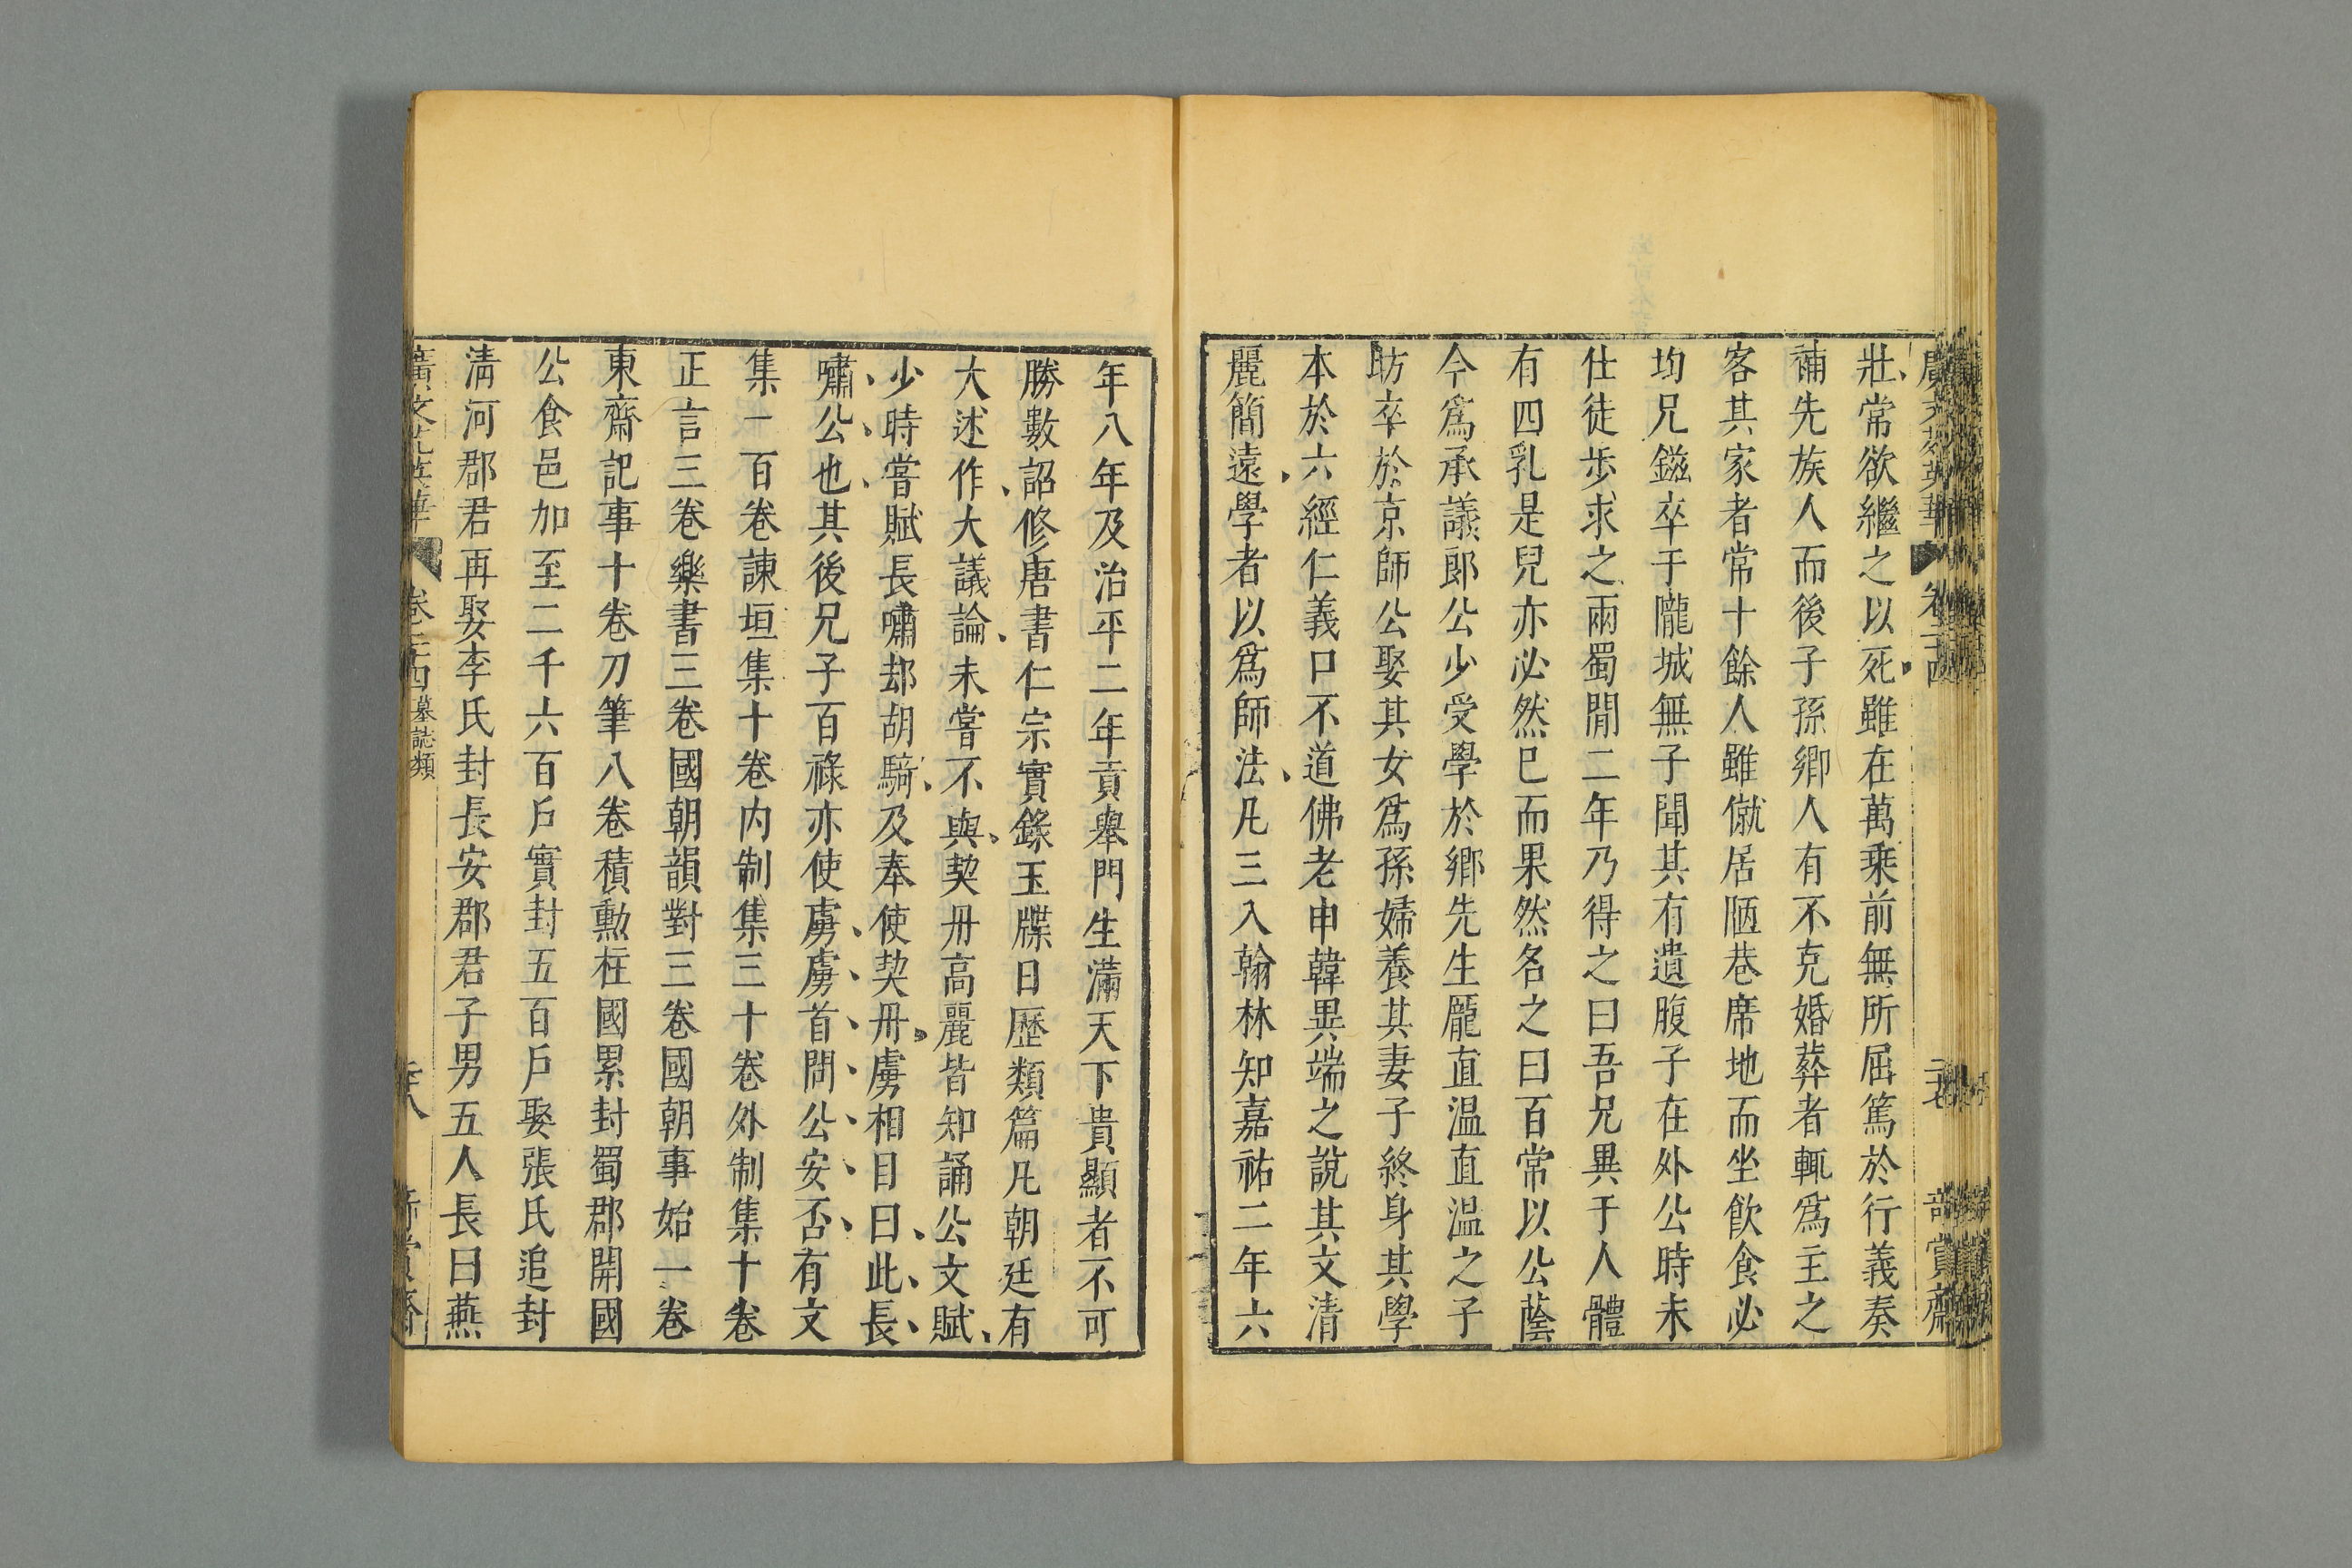 廣文苑英華 卷二十四
壯常欲繼之以死雖在萬乗前無所屈篤於行義奏
補先族人而後子孫鄉人有不克婚葬者輒爲主之
客其家者常十餘人雖僦居陋巷席地而坐飲食必
均兄鎡卒于隴城無子聞其有遺腹子在外公時未
仕徒步求之兩蜀閒二年乃得之曰吾兄異于人體
有四乳是兒亦必然已而果然名之曰百常以公蔭
今爲承議郎公少受學於鄉先生龎直温直温之子
昉卒於京師公娶其女爲孫婦養其妻子終身其學
本於六經仁義口不道佛老申韓異端之說其文清
麗簡遠學者以爲師法凡三入翰林知嘉祐二年六
年八年及治平二年貢舉門生滿天下貴顯者不可
勝數詔修唐書仁宗實錄玉牒日歷類篇凡朝廷有
大述作大議論未嘗不與契丹高麗皆知誦公文賦
少時嘗賦長嘯却胡騎及奉使契丹虜相目曰此長
嘯公也其後兄子百祿亦使虜虜首問公安否有文
集一百卷諫垣集十卷内制集三十卷外制集十卷
正言三卷樂書三卷國朝韻對三卷國朝事始一卷
東齋記事十卷刀筆八卷積勳柱國累封蜀郡開國
公食邑加至二千六百戶實封五百戶娶張氏追封
淸河郡君再娶李氏封長安郡君子男五人長曰燕
廣文苑英華 卷二十四 墓誌類